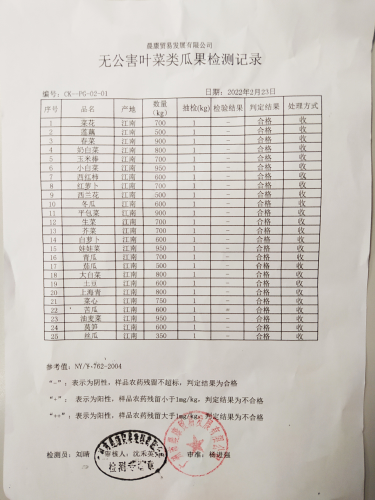 晨康贸易发展有限公司
无公害叶菜类瓜果检测记录
编号：CK-PG-02-01 日期：2022年2月23日
序号 品名 产地 数量(kg) 抽检(kg) 检验结果 判定结果 处理方式
1 菜花 江南 700 1 - 合格 收
2 莲藕 江南 500 1 - 合格 收
3 春菜 江南 900 1 - 合格 收
4 奶白菜 江南 800 1 - 合格 收
5 玉米棒 江南 700 1 - 合格 收
6 小白菜 江南 950 1 - 合格 收
7 西红柿 江南 600 1 - 合格 收
8 红萝卜 江南 700 1 - 合格 收
9 西兰花 江南 500 1 - 合格 收
10 冬瓜 江南 600 1 - 合格 收
11 平包菜 江南 900 1 - 合格 收
12 生菜 江南 500 1 - 合格 收
13 芥菜 江南 700 1 - 合格 收
14 白萝卜 江南 600 1 - 合格 收
15 娃娃菜 江南 950 1 - 合格 收
16 青瓜 江南 700 1 - 合格 收
17 茄瓜 江南 500 1 - 合格 收
18 大白菜 江南 800 1 - 合格 收
19 土豆 江南 600 1 - 合格 收
20 上海青 江南 800 1 - 合格 收
21 菜心 江南 750 1 - 合格 收
22 苦瓜 江南 600 1 - 合格 收
23 油麦菜 江南 950 1 - 合格 收
24 莴笋 江南 600 1 - 合格 收
25 丝瓜 江南 350 1 - 合格 收
参考值：NY/T-762-2004
"-"：表示为阴性，样品农药残留不超标，判定结果为合格
"-"：表示为阳性，样品农药残留小于1mg/kg，判定结果为不合格
"++"：表示为阳性，样品农药残留大于1mg/kg，判定结果为不合格
检测员：刘晴 审核人：沈禾英 审准：杨进强
检测专用章